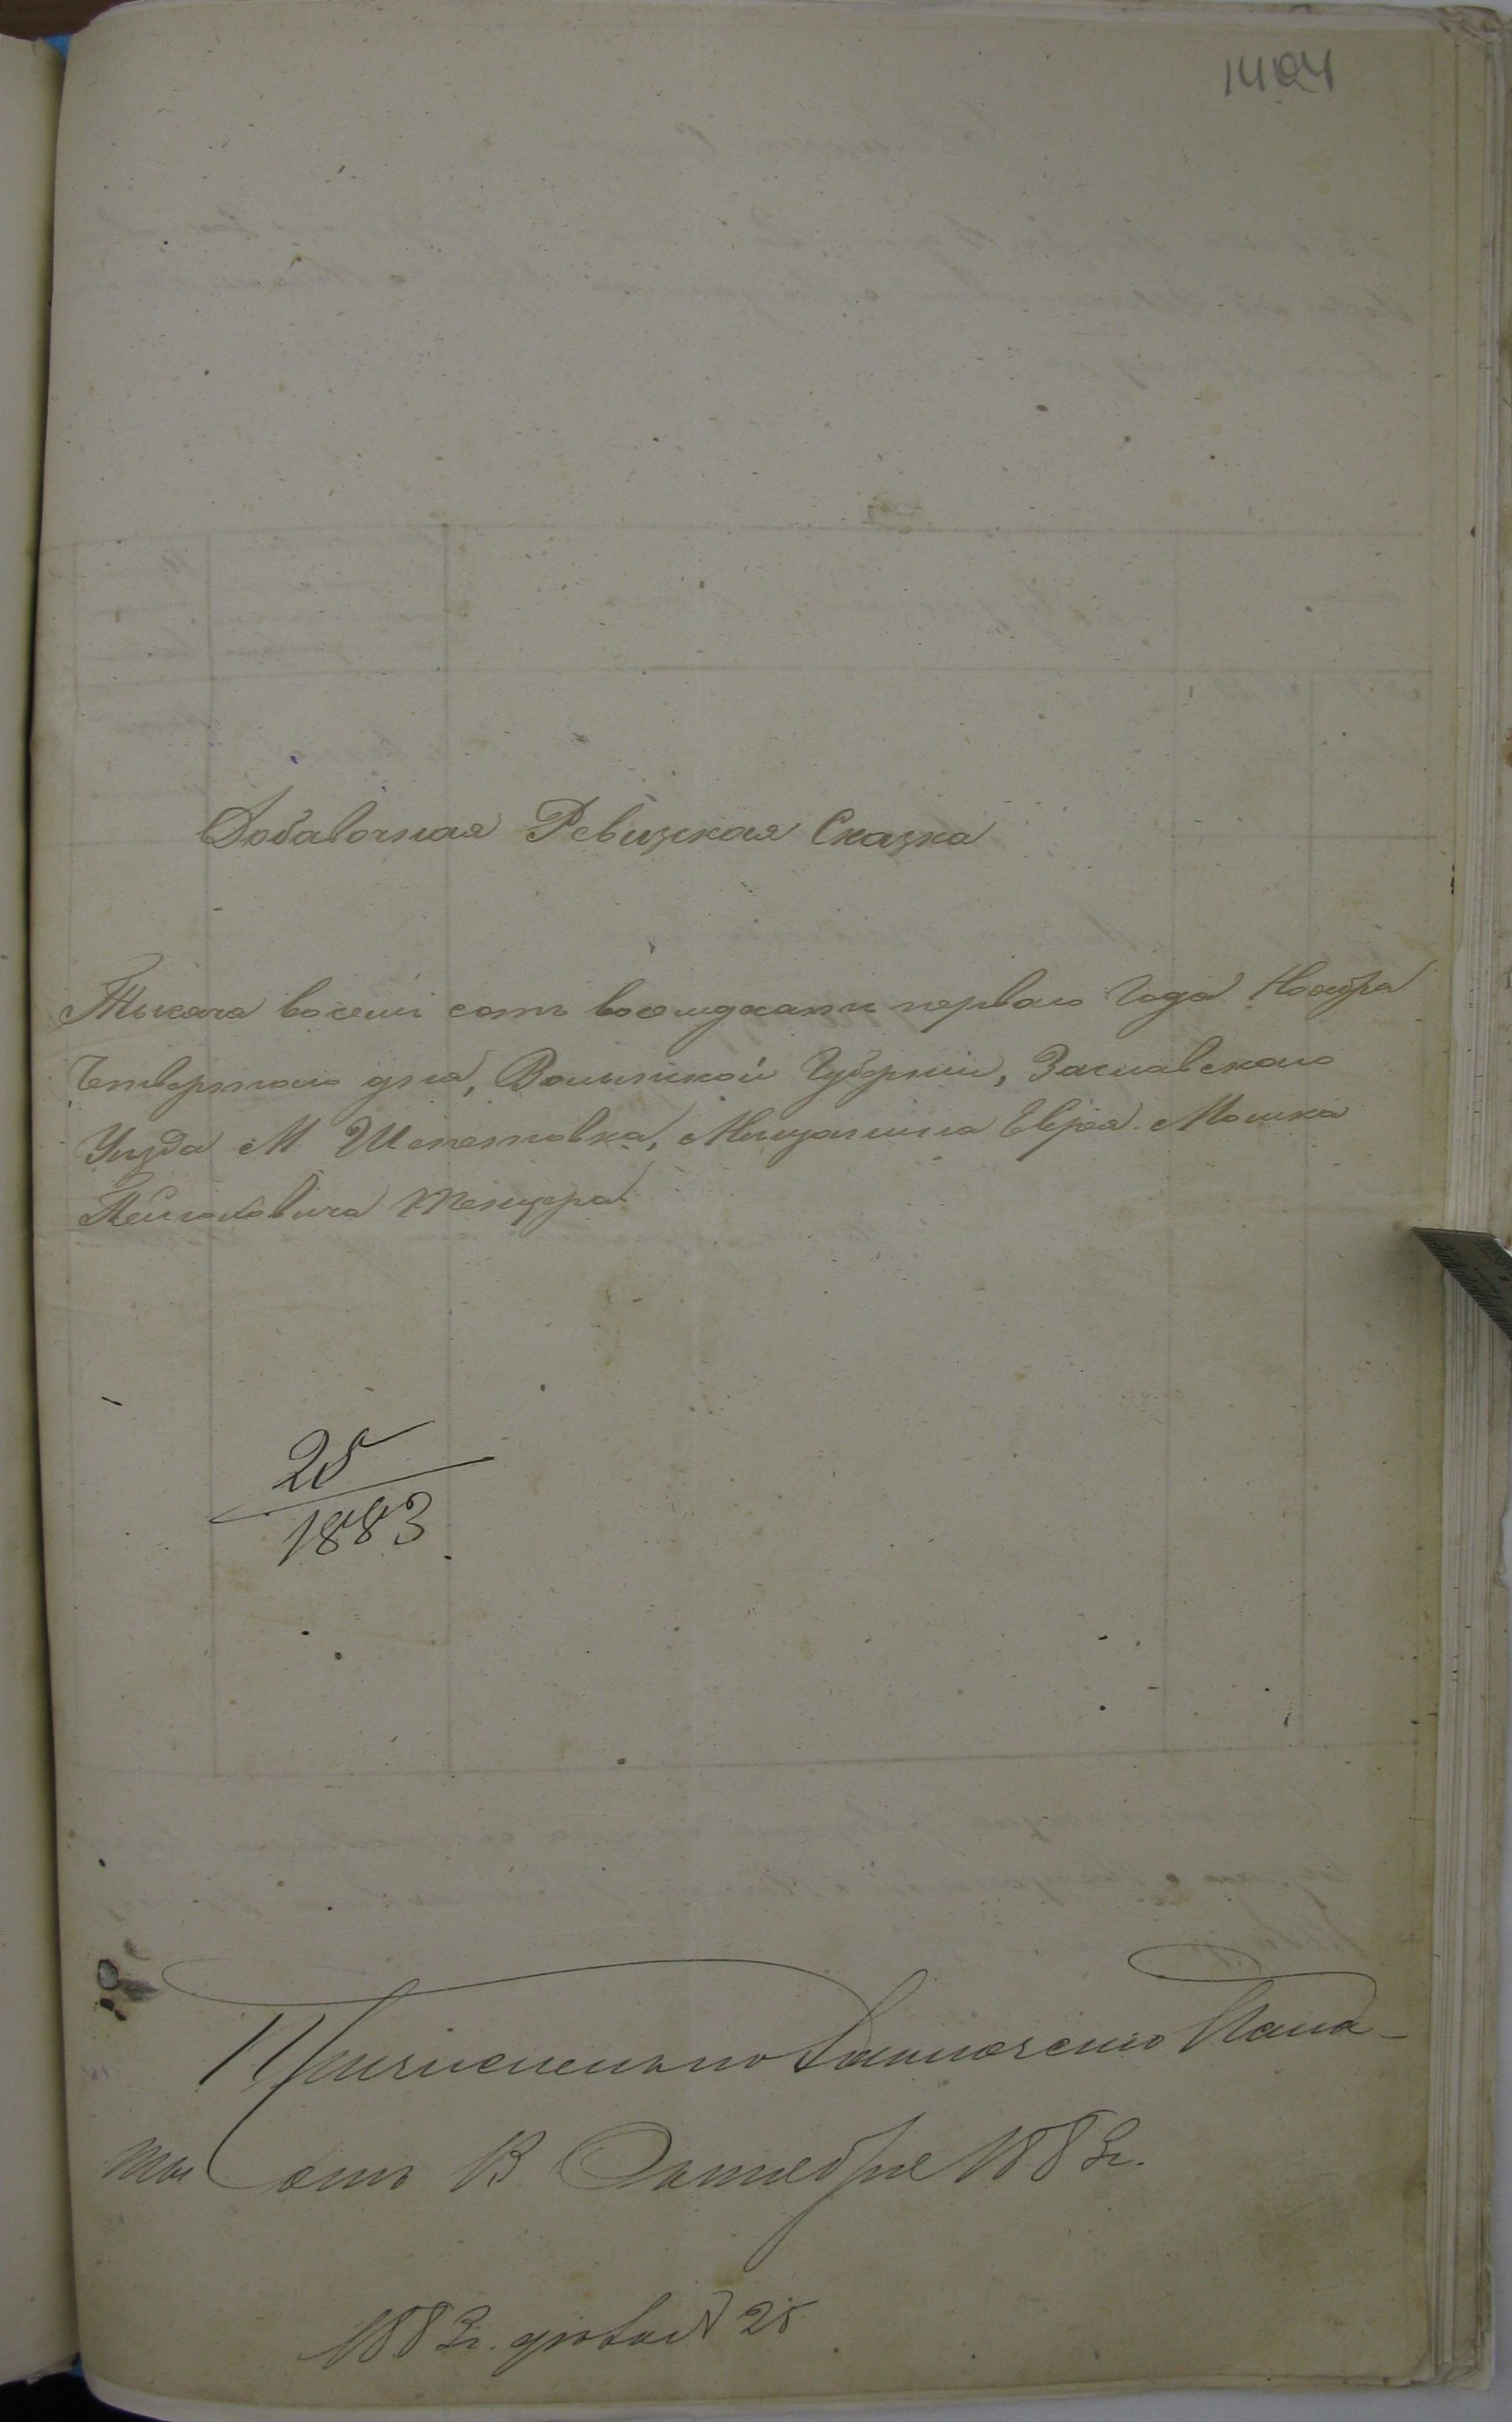 1404
Добавочная Ревизская Сказка
Тысяча восемь сотъ восемдесятъ перваго Года Ноября
Четвертаго дня, Волынской Губерніи, Заславскаго
Уѣзда М. Шепетовка, Мещанина Еврея Мошка
Тенцера
25
1883
Причисленъ по Пала-
ты отъ 13 Октября 1883г.
1883г. 25